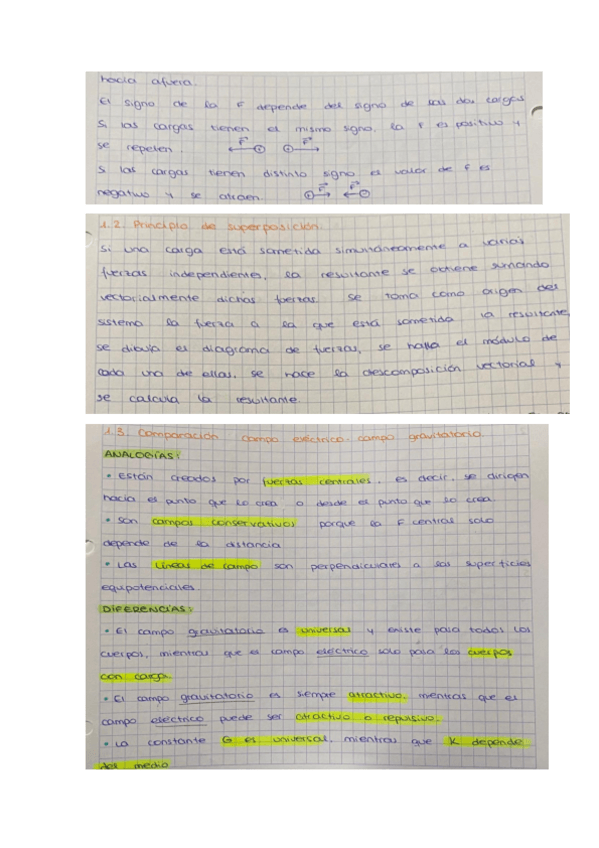 hacia afuera.
El signo de la F depende del signo de las dos cargas
Si las cargas tienen el mismo signo, la F es positivo y
se repelen. F F
Si las cargas tienen distinto signo el valor de F es
negativo y se atraen. F F
1.2. Principio de superposición.
Si una carga está sometida simultáneamente a varias
fuerzas independientes, la resultante se obtiene sumando
vectorialmente dichas fuerzas. Se toma como origen del
sistema la fuerza a la que está sometida la resultante,
se dibuja el diagrama de fuerzas, se halla el módulo de
cada una de ellas, se hace la descomposición vectorial y
se calcula la resultante.
1.3. Comparación campo eléctrico-campo gravitatorio.
ANALOGÍAS:
• Están creados por fuerzas centrales, es decir, se dirigen
hacia el punto que lo crea o desde el punto que lo crea.
• Son campos conservativos porque la F central solo
depende de la distancia
• Las líneas de campo son perpendiculares a las superficies
equipotenciales.
DIFERENCIAS:
• El campo gravitatorio es universal y existe para todos los
cuerpos, mientras que el campo eléctrico solo para los cuerpos
con carga.
• El campo gravitatorio es siempre atractivo, mientras que el
campo eléctrico puede ser atractivo o repulsivo.
• La constante G es universal, mientras que K depende
del medio